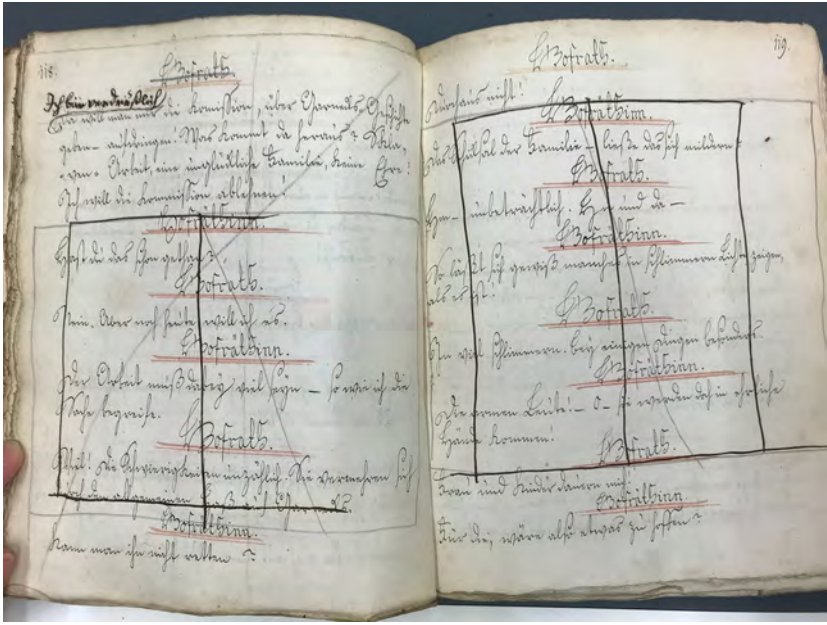 118.
Hofrath.
Ich bin verdrüßlich
Da will man mir die Komission, über Gharnets Geschichte
geben – aufdringen! Was kommt da heraus? Skla¬
ven = Arbeit, eine unglükliche Familie, keine Ehre!
Ich will die Kommission ablehnen!
Hofräthinn.
Hast du das schon gethan?
Hofrath.
Nein. Aber noch heute will ich es.
Hofräthinn.
Der Arbeit muß dabey viel seyn – so wie ich die
Sache begreife.
Hofrath.
Viel! Die Schwierigkeiten unzählich. Sie vermehren sich
durch den allgemeinen Haß auf Gharnets.
Hofräthinn.
Kann man ihn nicht retten?
119.
Hofrath.
Durchaus nicht!
Hofräthinn.
Das Schiksal der Familie – ließe das sich mildern?
Hofrath.
Hm – unbeträchtlich. Hie und da –
Hofräthinn.
So läßt sich gewiß manches in schlimmern Lichte zeigen,
als es ist.
Hofrath.
In viel schlimmern. bey einigen Dingen besonders.
Hofräthinn.
Die armen Leute! – O – sie werden doch in ehrliche
Hände kommen!
Hofrath.
Frau und Kinder dauern mich.
Hofräthinn.
Für die, wäre also etwas zu hoffen?